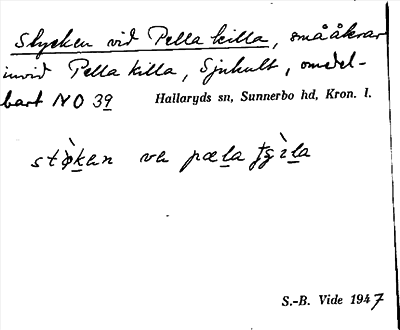 Stycken vid Pella killa, små åkrar
invid Pella killa, Sjukult, omedel-
bart NO 39 Hallaryds sn, Sunnerbo hd, Kron. l.
va pæla
S.-B. Vide 1947